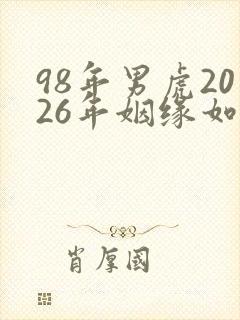 98年男虎20
26年姻缘如
肖厚国